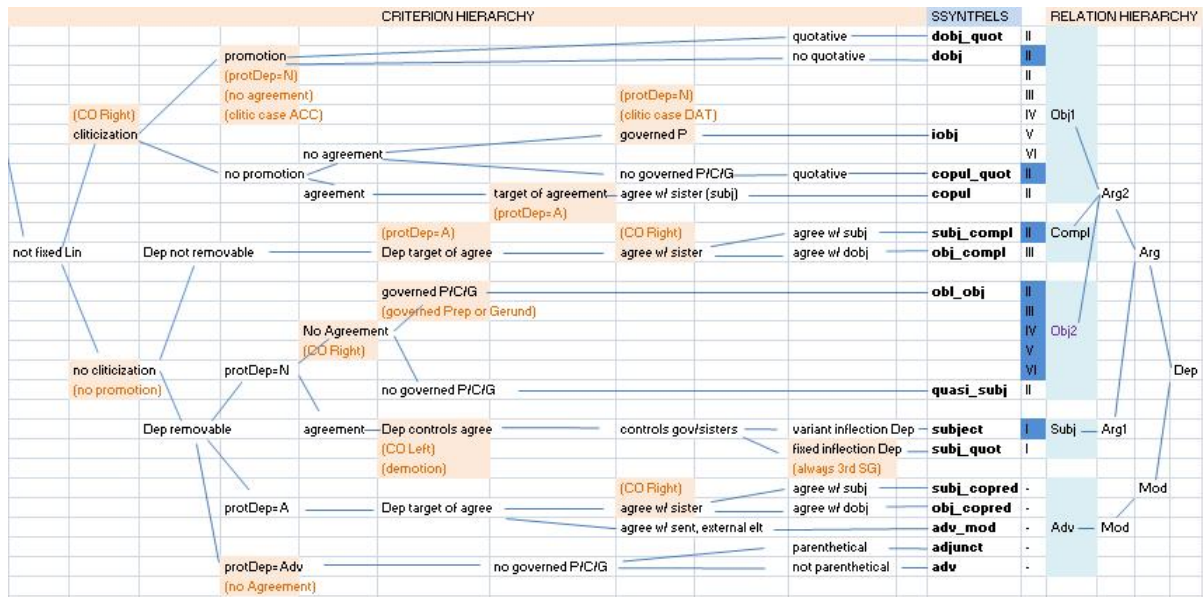 CRITERION HIERARCHY SSYNTRELS RELATION HIERARCHY
quotative dobj_quot II
promotion no quotative dobj II
(protDep=N) II
(no agreement) (protDep=N) III
(CO Right) (clitic case ACC) (clitic case DAT) IV Obj1
cliticization governed P iobj V
no agreement VI
no promotion no governed P/C/G quotative copul_quot II
agreement target of agreement agree w/ sister (subj) copul II Arg2
(protDep=A)
(protDep=A) (CO Right) agree w/ subj subj_compl II Compl
not fixed Lin Dep not removable Dep target of agree agree w/ sister agree w/ dobj obj_compl III Arg
governed P/C/G obl_obj II
(governed Prep or Gerund) III
No Agreement IV Obj2
(CO Right) V
no cliticization protDep=N VI Dep
(no promotion) no governed P/C/G quasi_subj II
Dep removable agreement Dep controls agree controls gov/sisters variant inflection Dep subject I Subj Arg1
(CO Left) fixed inflection Dep subj_quot I
(demotion) (always 3rd SG)
(CO Right) agree w/ subj subj_copred - Mod
protDep=A Dep target of agree agree w/ sister agree w/ dobj obj_copred -
agree w/ sent, external elt adv_mod - Adv Mod
parenthetical adjunct -
protDep=Adv no governed P/C/G not parenthetical adv -
(no Agreement)